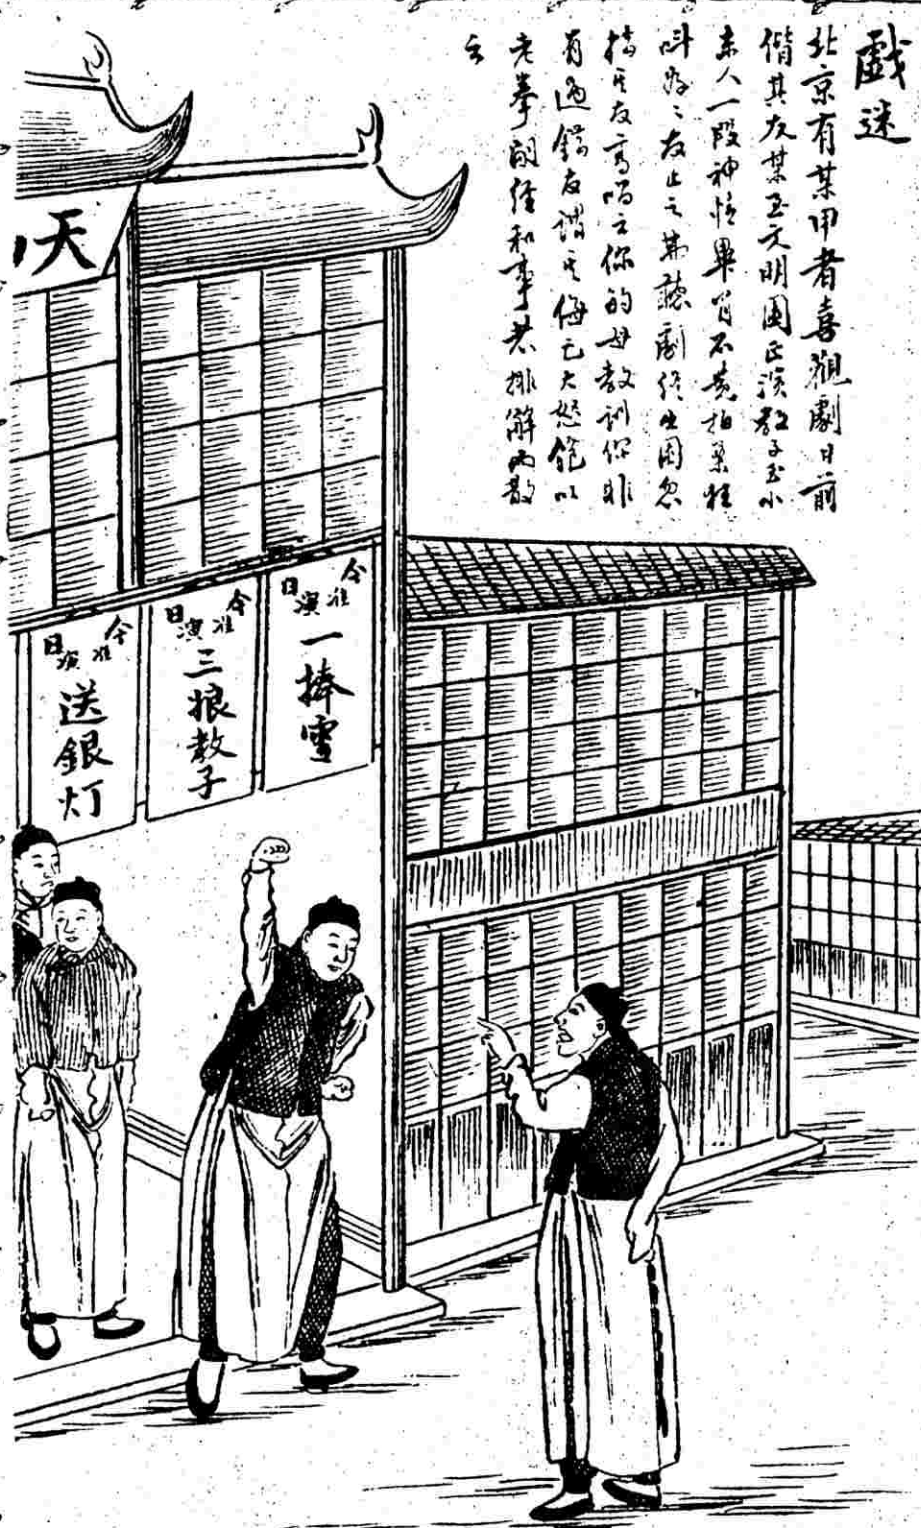 戲迷
北京有某甲者喜觀劇日前
偕其友某至文明園正演教子至小
東人一段神情畢肖不覺拍案狂
叫好々友止之弗聽劇終出園忽
指其友高唱云你的母教訓你非
有過錯友謂其侮己大怒飽以
老拳嗣經和事老排解而散
云
天
今日准演
一捧雪
今日准演
三娘教子
今日准演
送銀灯